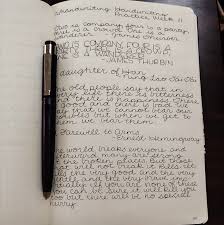 Handwriting Handwriting
Practice Week 11
Two is company, four is a party,
three is a crowd. One is a
wanderer. - James Thurber
TWO IS COMPANY, FOUR IS A
PARTY, THREE IS A CROWD.
ONE IS A WANDERER.
-JAMES THURBER
daughter of Han
Ning Lao
The old people say that in
there is happiness. These
good and there is
that we cannot bear our
sorrows but when we get to
them, we bear them.
Farewell to Arms
Ernest Hemingway
The world breaks everyone and
afterward many are strong
at the broken places. But those
that will not break it kills. It
kills the very good and the very
gentle and the very brave
impartially. If you are none of these
you can be sure it will kill you
too but there will be no special
hurry.